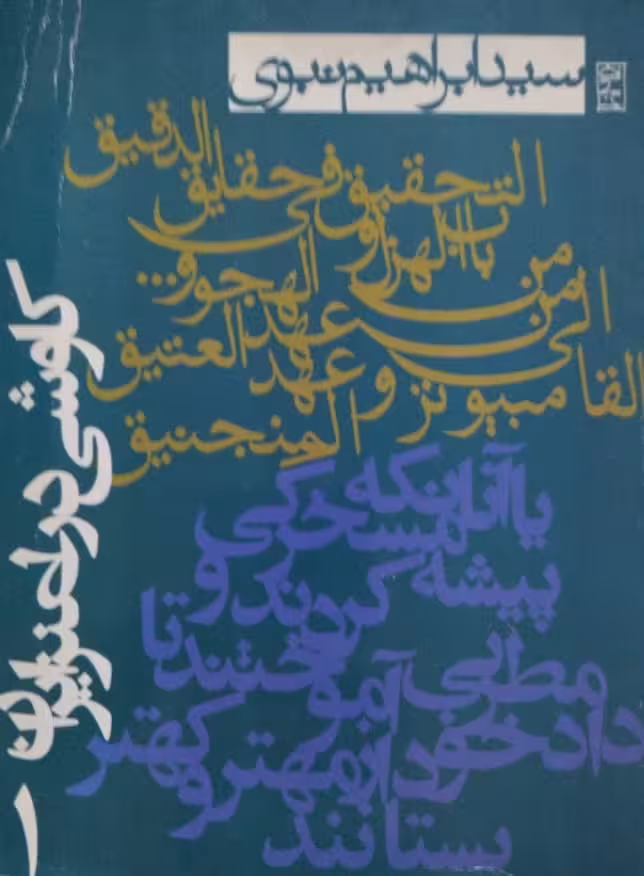 سیدابراهیم نبوی
التحقیق فی حقایق الدقیق
باب الهزل و الهجو و...
من عهد العتیق
الی
القامبیوتر و عهد
المنجنیق
یا آنانکه مسخرگی
پیشه کردند و
مطربی آموختند تا
داد خود از مهتر و کهتر
بستانند
کاوشی در طنز ایران
۱